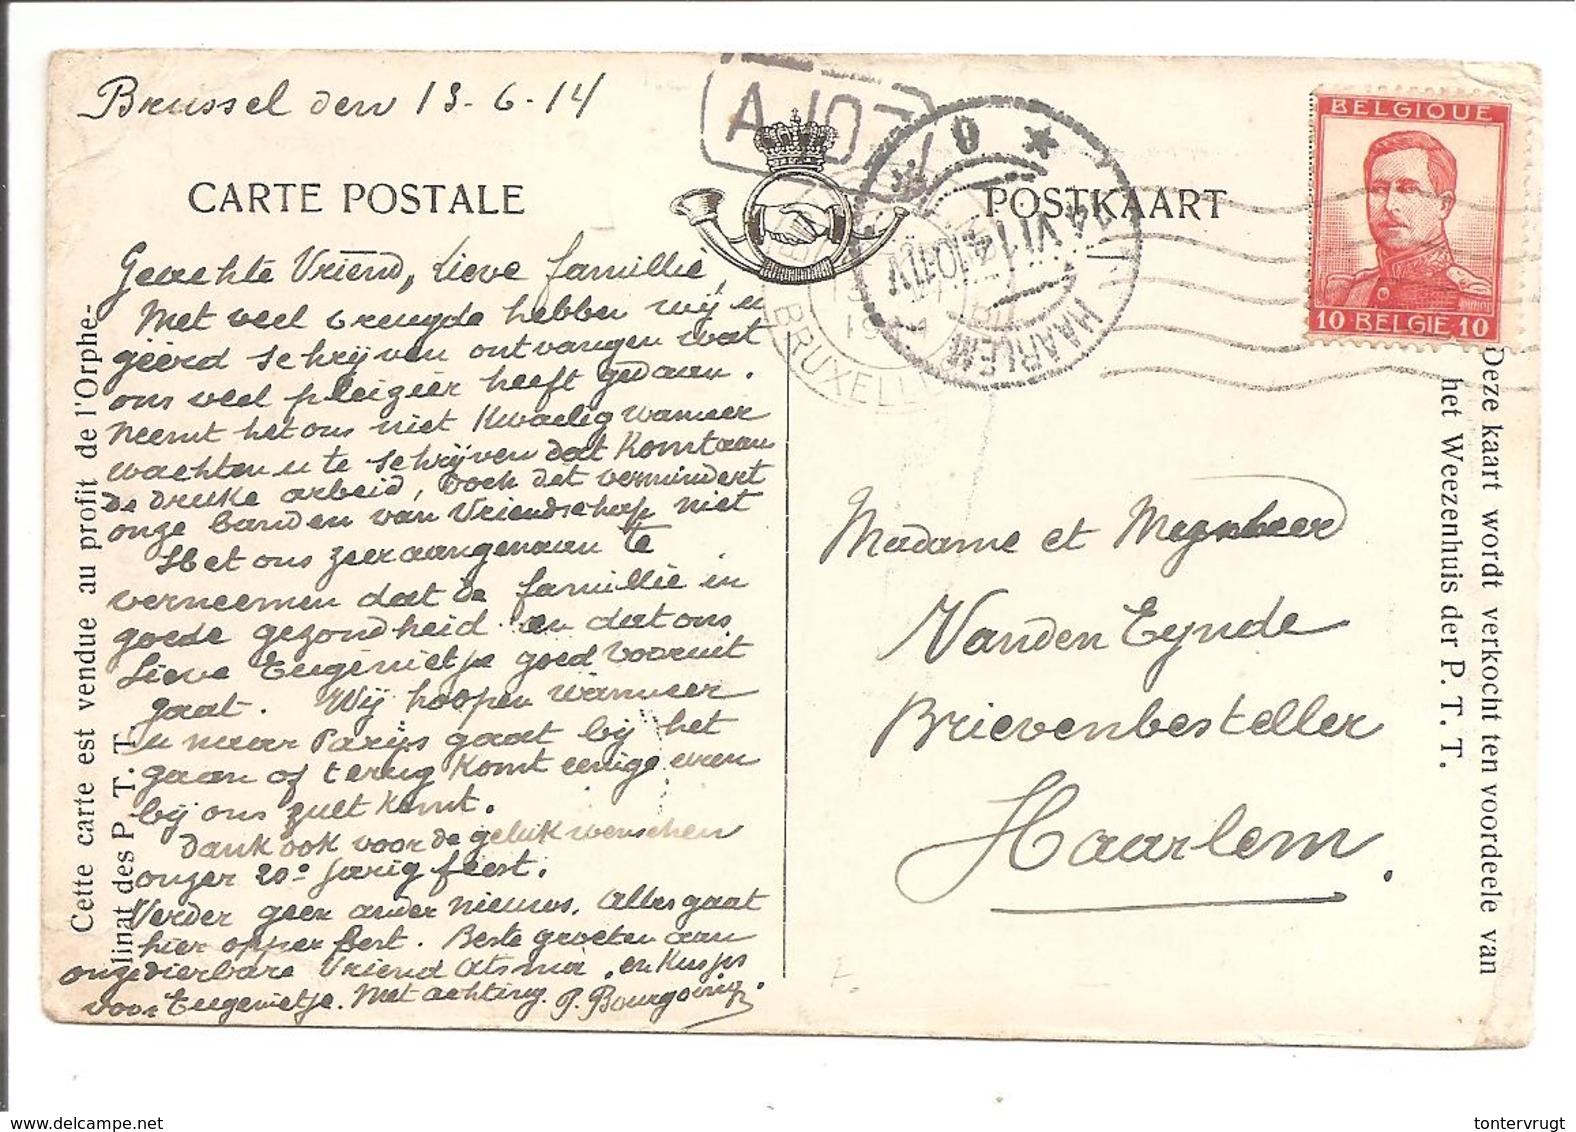 Brussel den 13-6-14
AJOT
CARTE POSTALE
POSTKAART
BELGIQUE
10 BELGIE 10
HAARLEM
BRUXELL
Geachte Vriend, Lieve famillie,
Met veel vreugde hebben wij u
geëerd schrijven ontvangen wat
ons veel pleizier heeft gedaan.
Neemt het ons niet kwaelig wanneer
wachten u te schrijven dat komt aan
De drukke arbeid, doch dat vermindert
onze banden van Vriendschap niet
Het ons zeer aangenaam te
verneemen dat de famillie in
goede gezondheid en dat ons
Lieve Eugènietje goed vooruit
gaat. Wij hoopen wanneer
u naar Parijs gaat bij het
gaan of terug komt eenige uren
bij ons zult komt.
Dank ook voor de gelukwenschen
onzer 20e jarig feest.
Verder geen ander nieuws. Alles gaat
hier opperbest. Beste groeten aan
onze dierbare Vriend Atsma, en kusjes
voor Eugenietje. Met achting P. Bourgoing.
Madame et Meynheer
Vanden Eynde
Brievenbesteller
Haarlem.
Cette carte est vendue au profit de l'Orphe-
linat des P. T. T.
Deze kaart wordt verkocht ten voordeele van
het Weezenhuis der P. T. T.
delcampe.net
tontervrugt